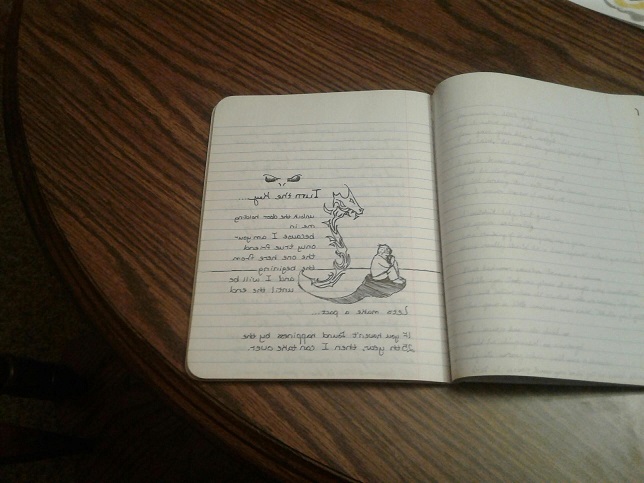 Turn the Key...
unlock the door holding
me in
because I am your
only true friend
the one here from
the begining
and I will be
until the end
Lets make a pact...
If you haven't found happiness by the
25th year, then I can take over